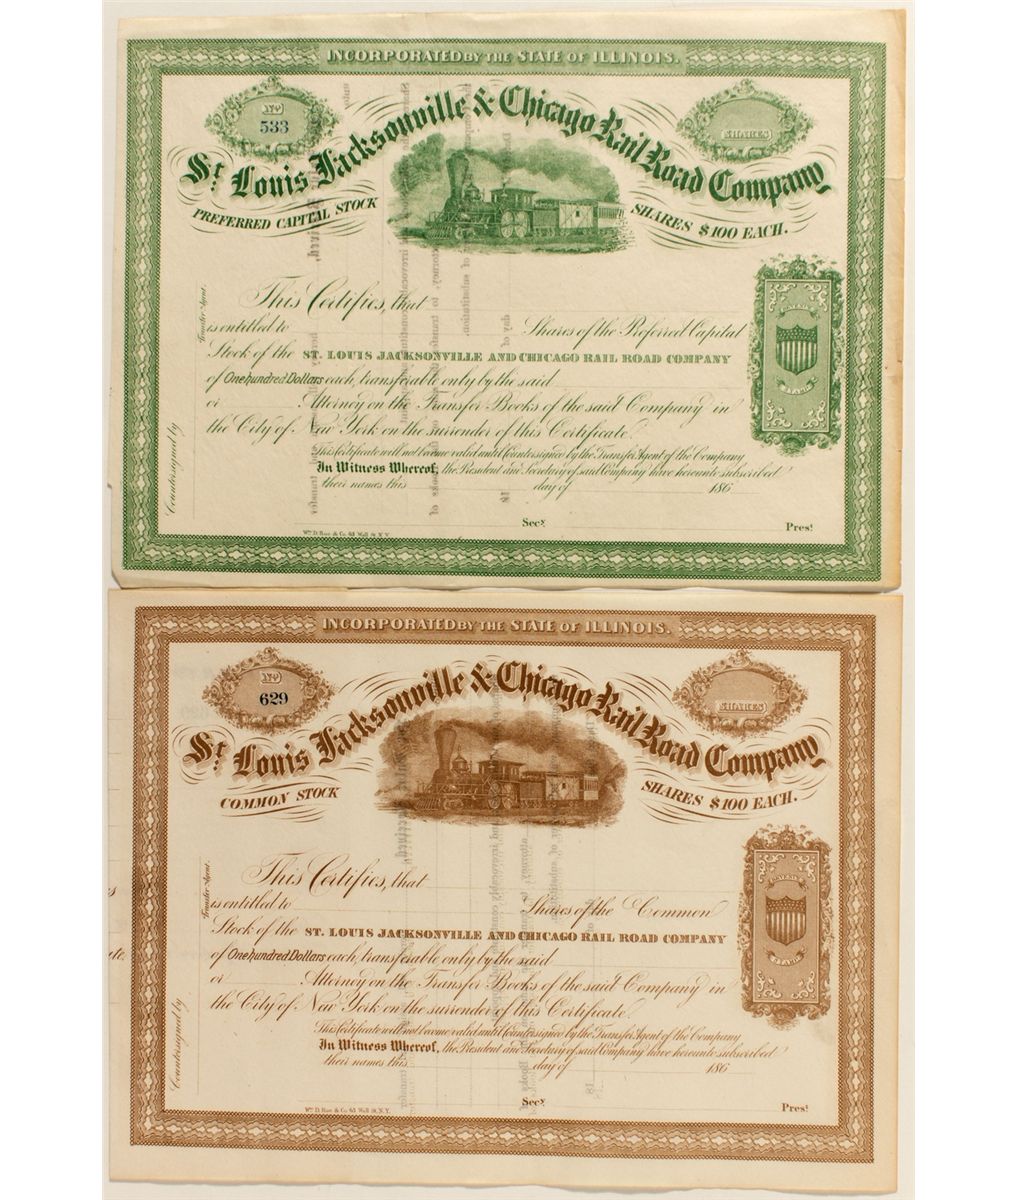 INCORPORATED BY THE STATE OF ILLINOIS.
No
533
SHARES
St. Louis Jacksonville & Chicago Rail Road Company
PREFERRED CAPITAL STOCK
SHARES $100 EACH.
This Certifies, that
is entitled to Shares of the Preferred Capital
Stock of the ST. LOUIS JACKSONVILLE AND CHICAGO RAIL ROAD COMPANY
of One hundred Dollars each, transferable only by the said
or Attorney on the Transfer Books of the said Company in
the City of New York on the surrender of this Certificate.
This Certificate will not become valid until Countersigned by the Transfer Agent of the Company
In Witness Whereof, the President and Secretary of said Company have hereunto subscribed
their names this day of 186
Secy
Prest
Countersigned by
Transfer Agent.
& Co. 61 Wall St. N.Y.
INCORPORATED BY THE STATE OF ILLINOIS.
No
629
SHARES
St. Louis Jacksonville & Chicago Rail Road Company
COMMON STOCK
SHARES $100 EACH.
This Certifies, that
is entitled to Shares of the Common
Stock of the ST. LOUIS JACKSONVILLE AND CHICAGO RAIL ROAD COMPANY
of One hundred Dollars each, transferable only by the said
or Attorney on the Transfer Books of the said Company in
the City of New York on the surrender of this Certificate.
This Certificate will not become valid until Countersigned by the Transfer Agent of the Company
In Witness Whereof, the President and Secretary of said Company have hereunto subscribed
their names this day of 186
Secy
Prest
Countersigned by
Transfer Agent.
& Co. 61 Wall St. N.Y.